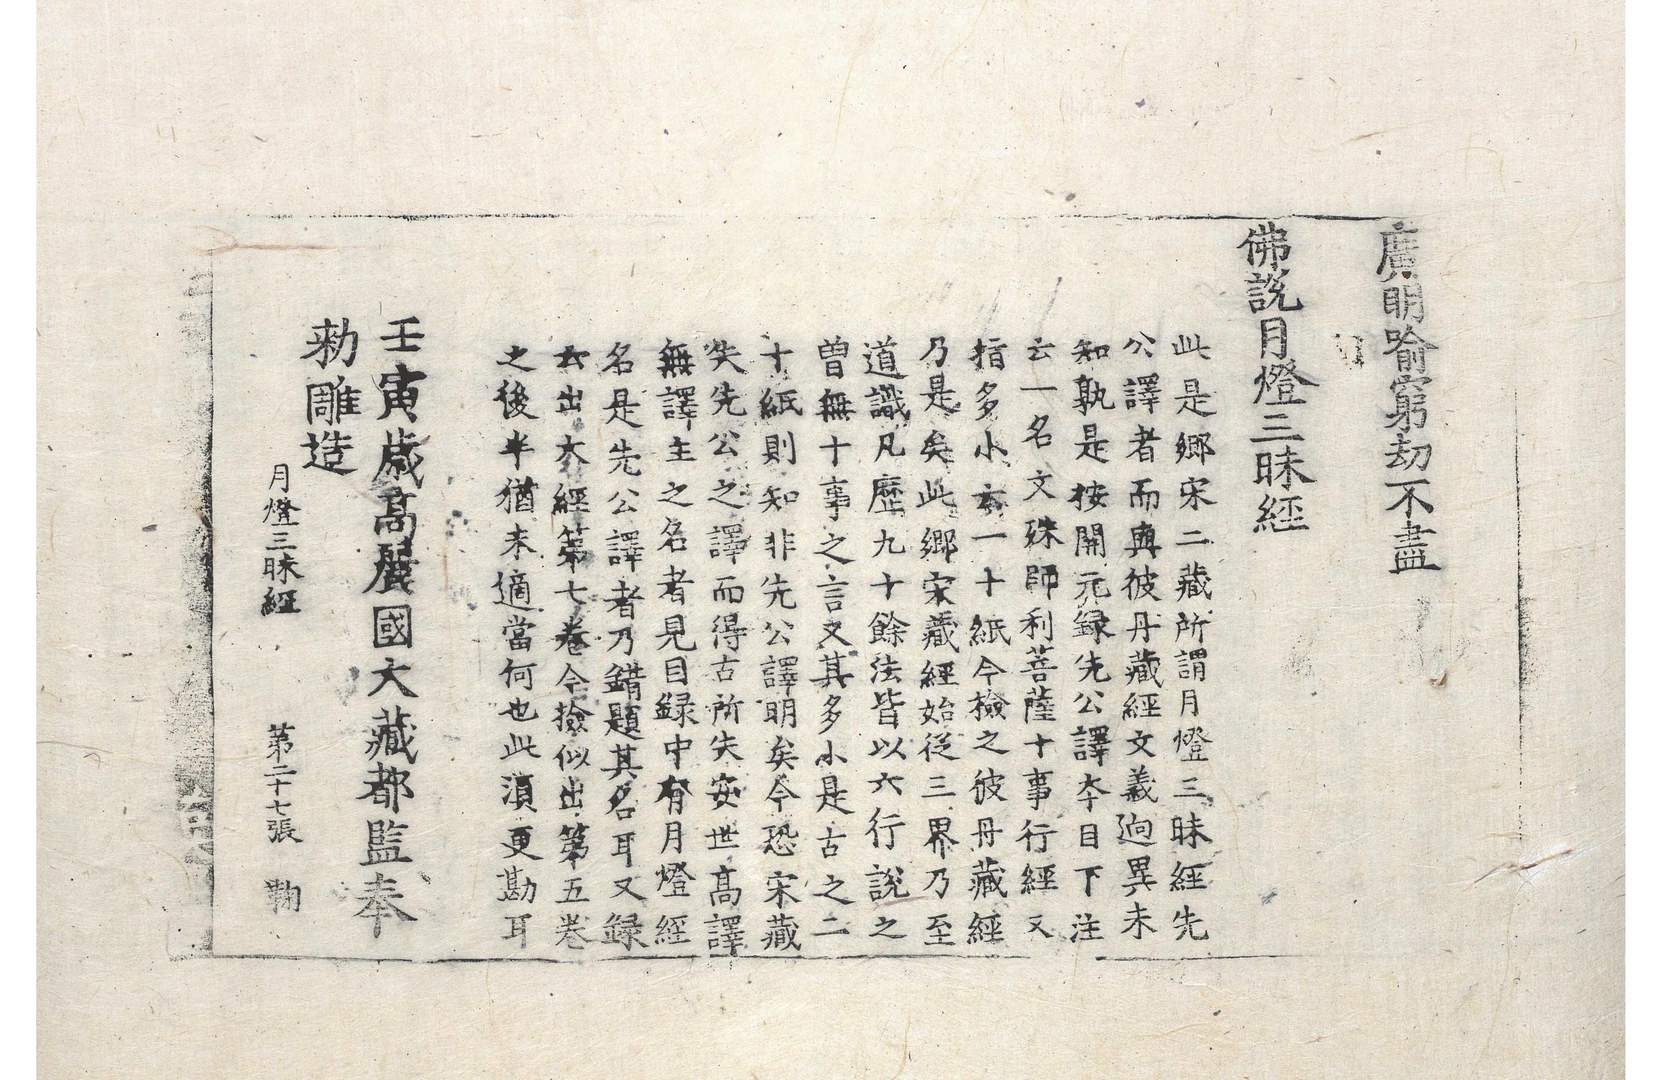 廣明喻窮劫不盡
佛說月燈三昧經
此是鄉宋二藏所謂月燈三昧經先
公譯者而與彼丹藏經文義逈異未
知孰是按開元録先公譯夲目下注
云一名文殊師利菩薩十事行經又
指多少云一十紙今撿之彼丹藏經
乃是矣此鄉宋藏經始從三界乃至
道識凡歷九十餘法皆以六行說之
曾無十事之言又其多小是古之二
十紙則知非先公譯明矣今恐宋藏
失先公之譯而得古所失安世高譯
無譯主之名者見目録中有月燈經
名是先公譯者乃錯題其名耳又録
云出大經第七卷今撿似出第五卷
之後半猶未適當何也此湏更勘耳
壬寅歲高麗國大藏都監奉
勑雕造
月燈三昧經 第二十七張 鞠